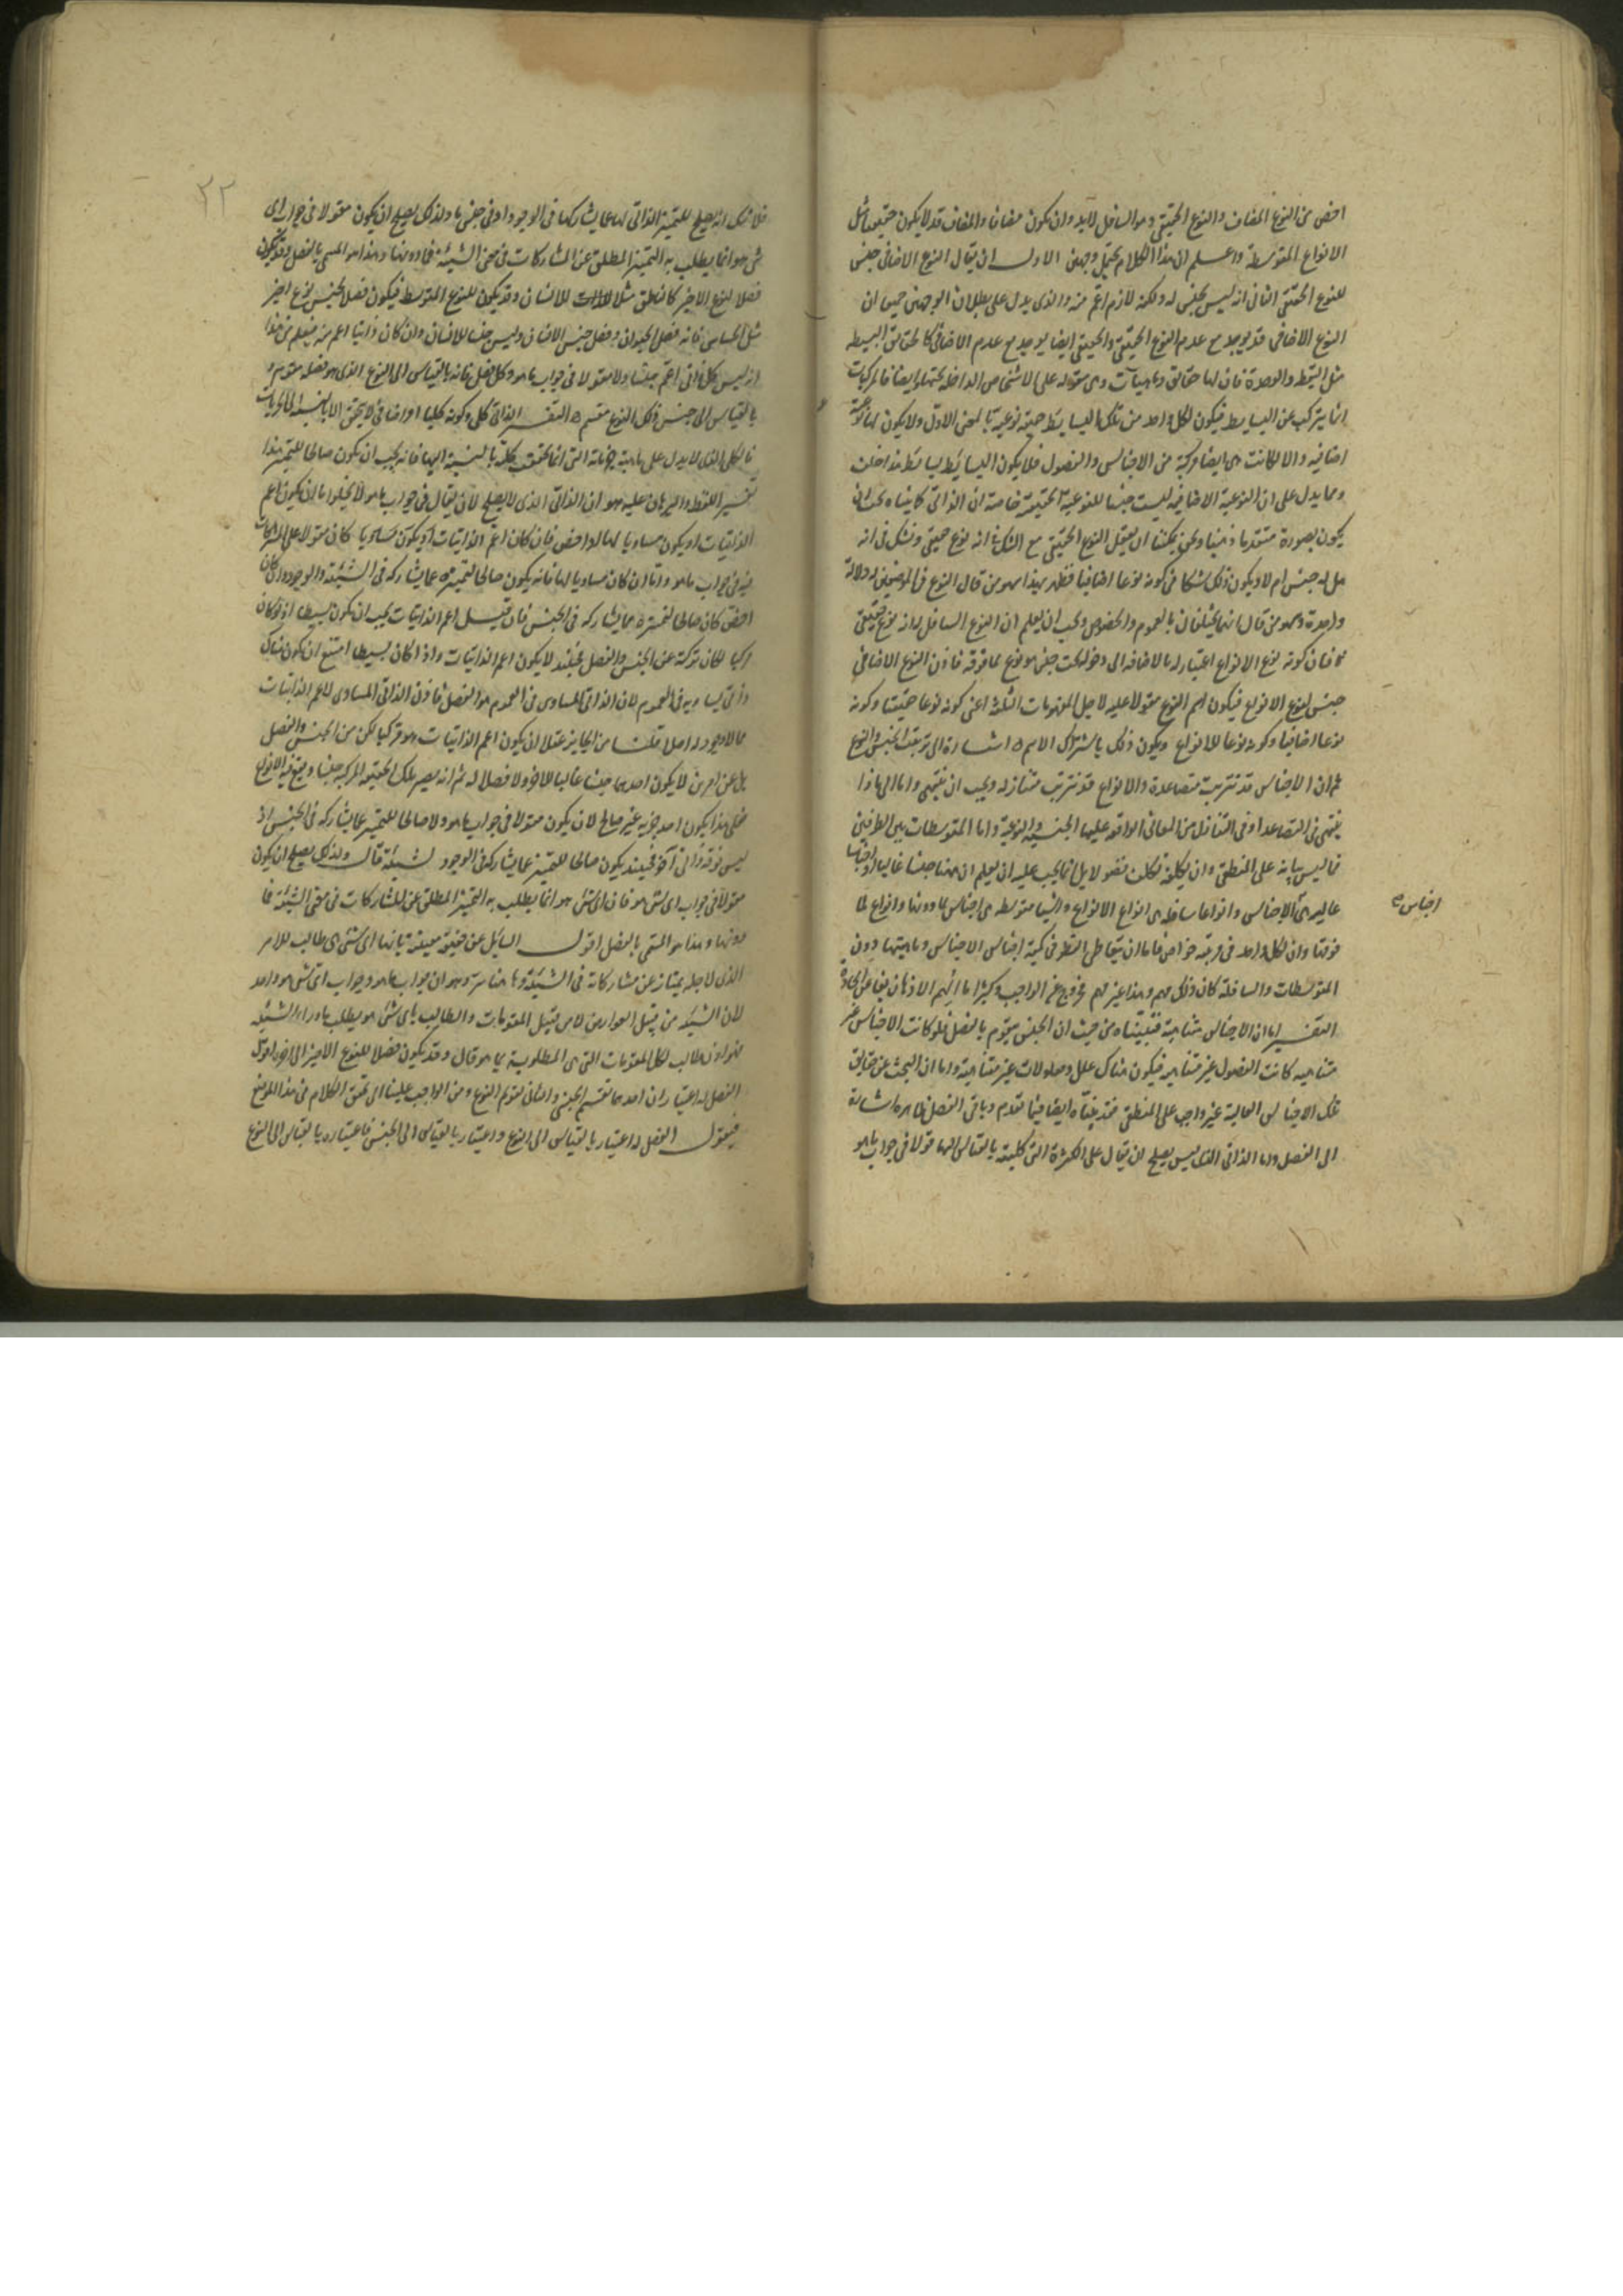 اخص من النوع المضاف والنوع الحقيقي وهو السافل لابد وان يكون مضافا والمضاف قد لا يكون حقيقيا مثل
الانواع المتوسطة واعلم ان هذا الكلام يحتمل وجهين الاول ان يقال النوع الاضافي جنس
للنوع الحقيقي الثاني انه ليس بجنس له ولكنه لازم اعم منه والذي يدل على بطلان الوجهين جميعا ان
النوع الاضافي قد يوجد مع عدم النوع الحقيقي والحقيقي ايضا يوجد مع عدم الاضافي كالحقايق البسيطة
مثل النقط والوحدة فان لها حقائق وماهيات وهي مقولة على الاشخاص الداخلة تحتها وايضا فالمركبات
انما يتركب عن البسايط فيكون لكل واحد من تلك البسايط حقيقة نوعية بالمعنى الاول ولا يكون لها نوعية
اضافية والا لكانت هي ايضا مركبة من الاجناس والفصول فلا يكون البسايط بسايط هذا خلف
ومما يدل على ان النوعية الاضافية ليست جنسا للنوعية الحقيقية خاصة ان الذاتي كما بيناه يجب ان
يكون بصورة متقدما ذهنيا ونحن يمكننا ان نعقل النوع الحقيقي مع الشك في انه نوع حقيقي ونشك في انه
هل له جنس ام لا ويكون ذلك شكا في كونه نوعا اضافيا فظهر بهذا سهو من قال النوع في الموضعين له دلالة
واحدة وسهو من قال انهما يختلفان بالعموم والخصوص ويجب ان يعلم ان النوع السافل له انه نوع حقيقي
فان كونه نوع الانواع اعتبار له بالاضافة الى دخوله تحت جنس هو نوع لما فوقه فاذن النوع الاضافي
جنس لنوع الانواع فيكون اسم النوع مقولا عليه لاجل المفهومات الثلثة اعني كونه نوعا حقيقيا وكونه
نوعا اضافيا وكونه نوعا للانواع ويكون ذلك باشتراك الاسم اشارة الى ترتيب الجنس والنوع
ثم ان الاجناس قد تترتب متصاعدة والانواع قد تترتب متنازلة ويجب ان ينتهي واما الى ماذا
ينتهي في التصاعد او في التنازل من المعاني الواقعة عليها الجنسية والنوعية واما المتوسطات بين الطرفين
فما ليس بيانه على المنطقي وان تكلفه تكلف فضولا بل انما يجب عليه ان يعلم ان ههنا جنسا عاليا او اجناسا
عالية هي اجناس الاجناس وانواعا سافلة هي انواع الانواع واشيا متوسطة هي اجناس لما دونها وانواع لما
فوقها وان لكل واحد في مرتبته خواص فاما ان يتعاطى النظر في كمية اجناس الاجناس وماهيتها دون
المتوسطات والسافلة كان ذلك مهم وهذا غير مهم فخروج عن الواجب وكثيرا ما الهم الاذهان زيغا عن الجادة
التفسير اما ان الاجناس متناهية فبيناه من حيث ان الجنس يتقوم بالفصل فلو كانت الاجناس غير
متناهية كانت الفصول غير متناهية فيكون هناك علل ومعلولات غير متناهية واما ان البحث عن حقايق
تلك الاجناس العالية غير واجب على المنطقي فقد بيناه ايضا فيما تقدم وباقي الفصل ظاهر اشارة
الى الفصل واما الذاتي الذي ليس يصلح ان يقال على الكثرة التي كليته بالقياس اليها قولا في جواب ما هو
اجناس
٢٢
فلا شك انه يصلح للتمييز الذاتي لها عما يشاركها في الوجود او في جنس ما ولذلك يصلح ان يكون مقولا في جواب اي
شي هو انما يطلب به التمييز المطلق عن المشاركات في معنى الشيئية فما دونها وهذا هو المسمى بالفصل وقد يكون
فصلا للنوع الاخير كالناطق مثلا للانسان وقد يكون للنوع المتوسط فيكون فصلا لجنس نوع اخير
مثل الحساس فانه فصل الحيوان وفصل جنس الانسان وليس جنسا للانسان وان كان ذاتيا اعم منه فيعلم من هذا
انه ليس كل ذاتي اعم جنسا ولا مقولا في جواب ما هو وكل فصل فانه بالقياس الى النوع الذي هو فصله مقوم و
بالقياس الى جنس ذلك النوع مقسم التفسير الذاتي كلي وكونه كليا امر اضافي لا يتحقق الا بالنسبة الى الجزئيات
فالكلي الذي لا يدل على ماهية جزئياته التي انما تحققت كليته بالنسبة اليها فانه يجب ان يكون صالحا للتمييز هذا
تفسير اللفظ والبرهان عليه هو ان الذاتي الذي لا يصلح لان يقال في جواب ما هو لا يخلو اما ان يكون اعم
الذاتيات او يكون مساويا لها او اخص فان كان اعم الذاتيات او يكون مساويا كان مقولا على المشاركات
فيه في جواب ما هو واما ان كان مساويا لها فانه يكون صالحا لتمييزه عما يشاركه في الشيئية والوجود وان كان
اخص كان صالحا لتمييزه عما يشاركه في الجنس فان قيل اعم الذاتيات يجب ان يكون بسيطا اذ لو كان
مركبا لكان تركبه عن الجنس والفصل فحينئذ لا يكون اعم الذاتيات واذا كان بسيطا امتنع ان يكون هناك
ذاتي يساويه في العموم لان الذاتي المساوي في العموم هو الفصل فاذن الذاتي المساوي لاعم الذاتيات
مما لا وجود له اصلا قلنا من الجايز عقلا ان يكون اعم الذاتيات هو مركبا لكن من الجنس والفصل
بل عن امرين لا يكون احدهما جنسا عاليا للاخر ولا فصلا له ثم انه يصير تلك الحقيقة المركبة جنسا ويقع فيه الانواع
فعلى هذا يكون احد جزئيه غير صالح لان يكون مقولا في جواب ما هو ولا صالحا للتمييز عما يشاركه في الجنس اذ
ليس فوقه ذاتي آخر فحينئذ يكون صالحا للتمييز عما يشاركه في الوجود لشيئية قال ولذلك يصلح ان يكون
مقولا في جواب اي شي هو فان اي شي هو انما يطلب به التمييز المطلق عن المشاركات في معنى الشيئية فما
دونها وهذا هو المسمى بالفصل اقول السايل عن حقيقة معينة بانها اي شي هي طالب للامر
الذي لاجله يمتاز عن مشاركاته في الشيئية وما هنا سر وهو ان جواب ما هو وجواب اي شي هو واحد
لان الشيئية من قبيل العوارض لا من قبيل المقومات والطالب باي شي هو يطلب ما وراء الشيئية
فهو اذن طالب لكل المقومات التي هي المطلوبة بما هو قال وقد يكون فصلا للنوع الاخير الى آخره اقول
الفصل له اعتباران احدهما تقسيم الجنس والثاني تقويم النوع ومن الواجب علينا ان نحقق الكلام في هذا الموضع
فنقول الفصل له اعتبار بالقياس الى النوع واعتبار بالقياس الى الجنس فاعتباره بالقياس الى النوع